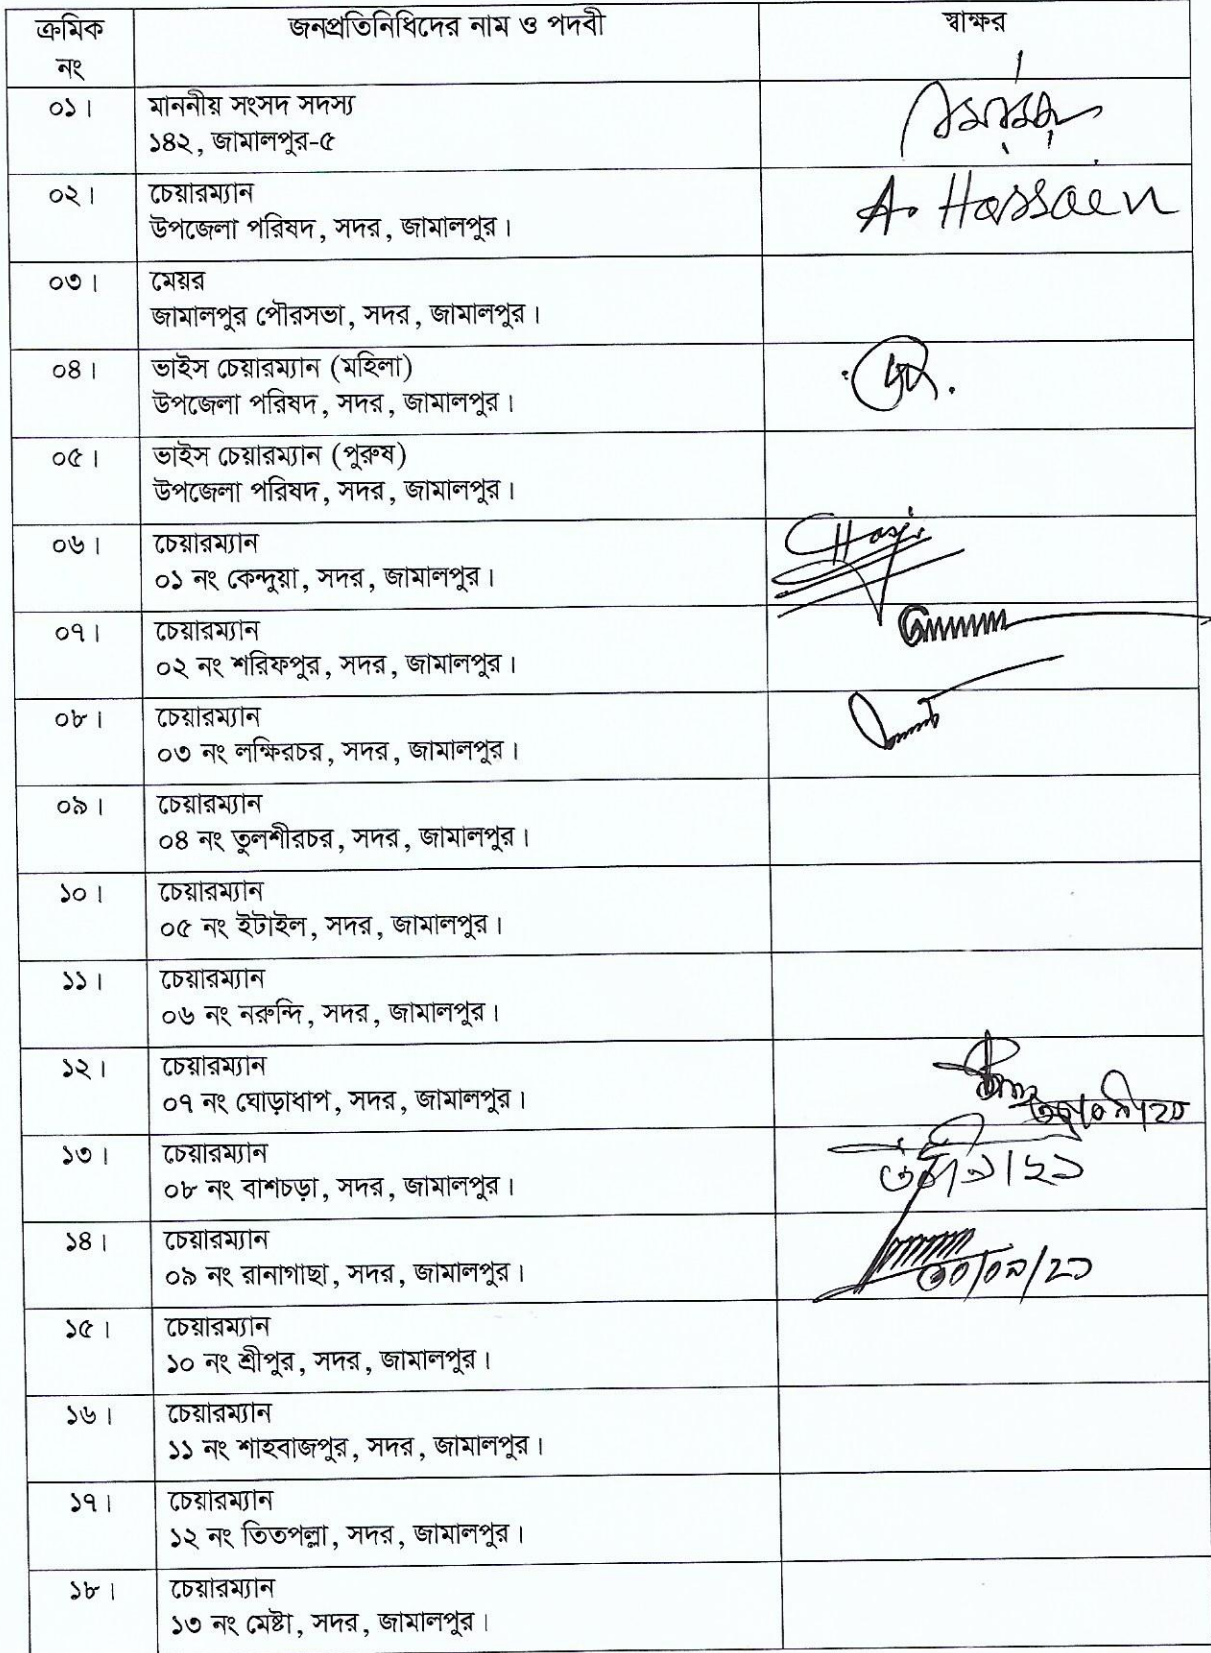 ক্রমিক নং জনপ্রতিনিধিদের নাম ও পদবী স্বাক্ষর
০১। মাননীয় সংসদ সদস্য
১৪২, জামালপুর-৫
০২। চেয়ারম্যান A. Hossaen
উপজেলা পরিষদ, সদর, জামালপুর।
০৩। মেয়র
জামালপুর পৌরসভা, সদর, জামালপুর।
০৪। ভাইস চেয়ারম্যান (মহিলা)
উপজেলা পরিষদ, সদর, জামালপুর।
০৫। ভাইস চেয়ারম্যান (পুরুষ)
উপজেলা পরিষদ, সদর, জামালপুর।
০৬। চেয়ারম্যান
০১ নং কেন্দুয়া, সদর, জামালপুর।
০৭। চেয়ারম্যান
০২ নং শরিফপুর, সদর, জামালপুর।
০৮। চেয়ারম্যান
০৩ নং লক্ষিরচর, সদর, জামালপুর।
০৯। চেয়ারম্যান
০৪ নং তুলশীরচর, সদর, জামালপুর।
১০। চেয়ারম্যান
০৫ নং ইটাইল, সদর, জামালপুর।
১১। চেয়ারম্যান
০৬ নং নরুন্দি, সদর, জামালপুর।
১২। চেয়ারম্যান
০৭ নং ঘোড়াধাপ, সদর, জামালপুর।
১৩। চেয়ারম্যান
০৮ নং বাশচড়া, সদর, জামালপুর।
১৪। চেয়ারম্যান
০৯ নং রানাগাছা, সদর, জামালপুর। ৩০/০৯/২১
১৫। চেয়ারম্যান
১০ নং শ্রীপুর, সদর, জামালপুর।
১৬। চেয়ারম্যান
১১ নং শাহবাজপুর, সদর, জামালপুর।
১৭। চেয়ারম্যান
১২ নং তিতপল্লা, সদর, জামালপুর।
১৮। চেয়ারম্যান
১৩ নং মেষ্টা, সদর, জামালপুর।